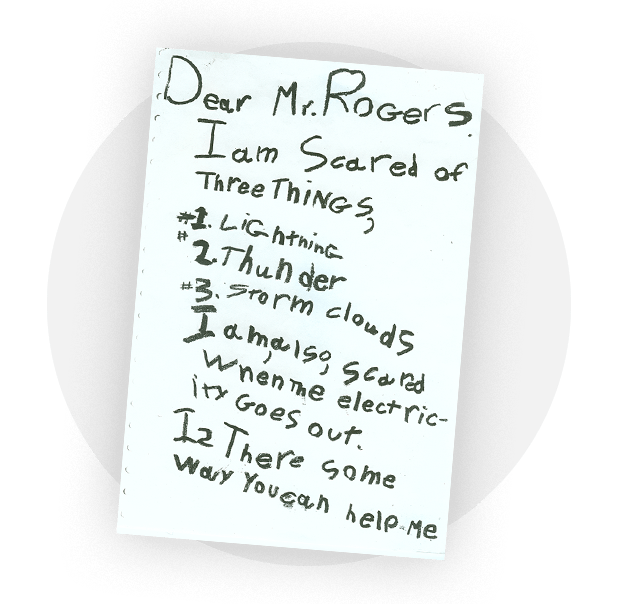 Dear Mr. Rogers.
I am Scared of
Three THINGS,
#1. LiGhtning
#2. Thunder
#3. Storm clouds
I am, also, scared
When the electric-
ity Goes out.
Iz There some
Way You can help me